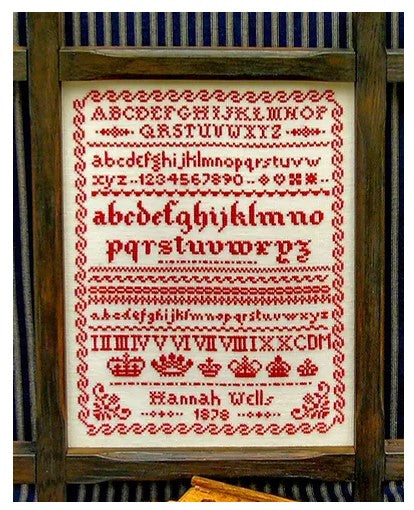 ABCDEFGHIJKLMNOP
QRSTUVWXYZ
abcdefghijklmnopqrstuvw
xyz 1234567890
abcdefghijklmno
pqrstuvwxyz
abcdefghijklmnopqrstuvwxyz
I II III IV V VI VII VIII IX X C D M
Hannah Wells
1878